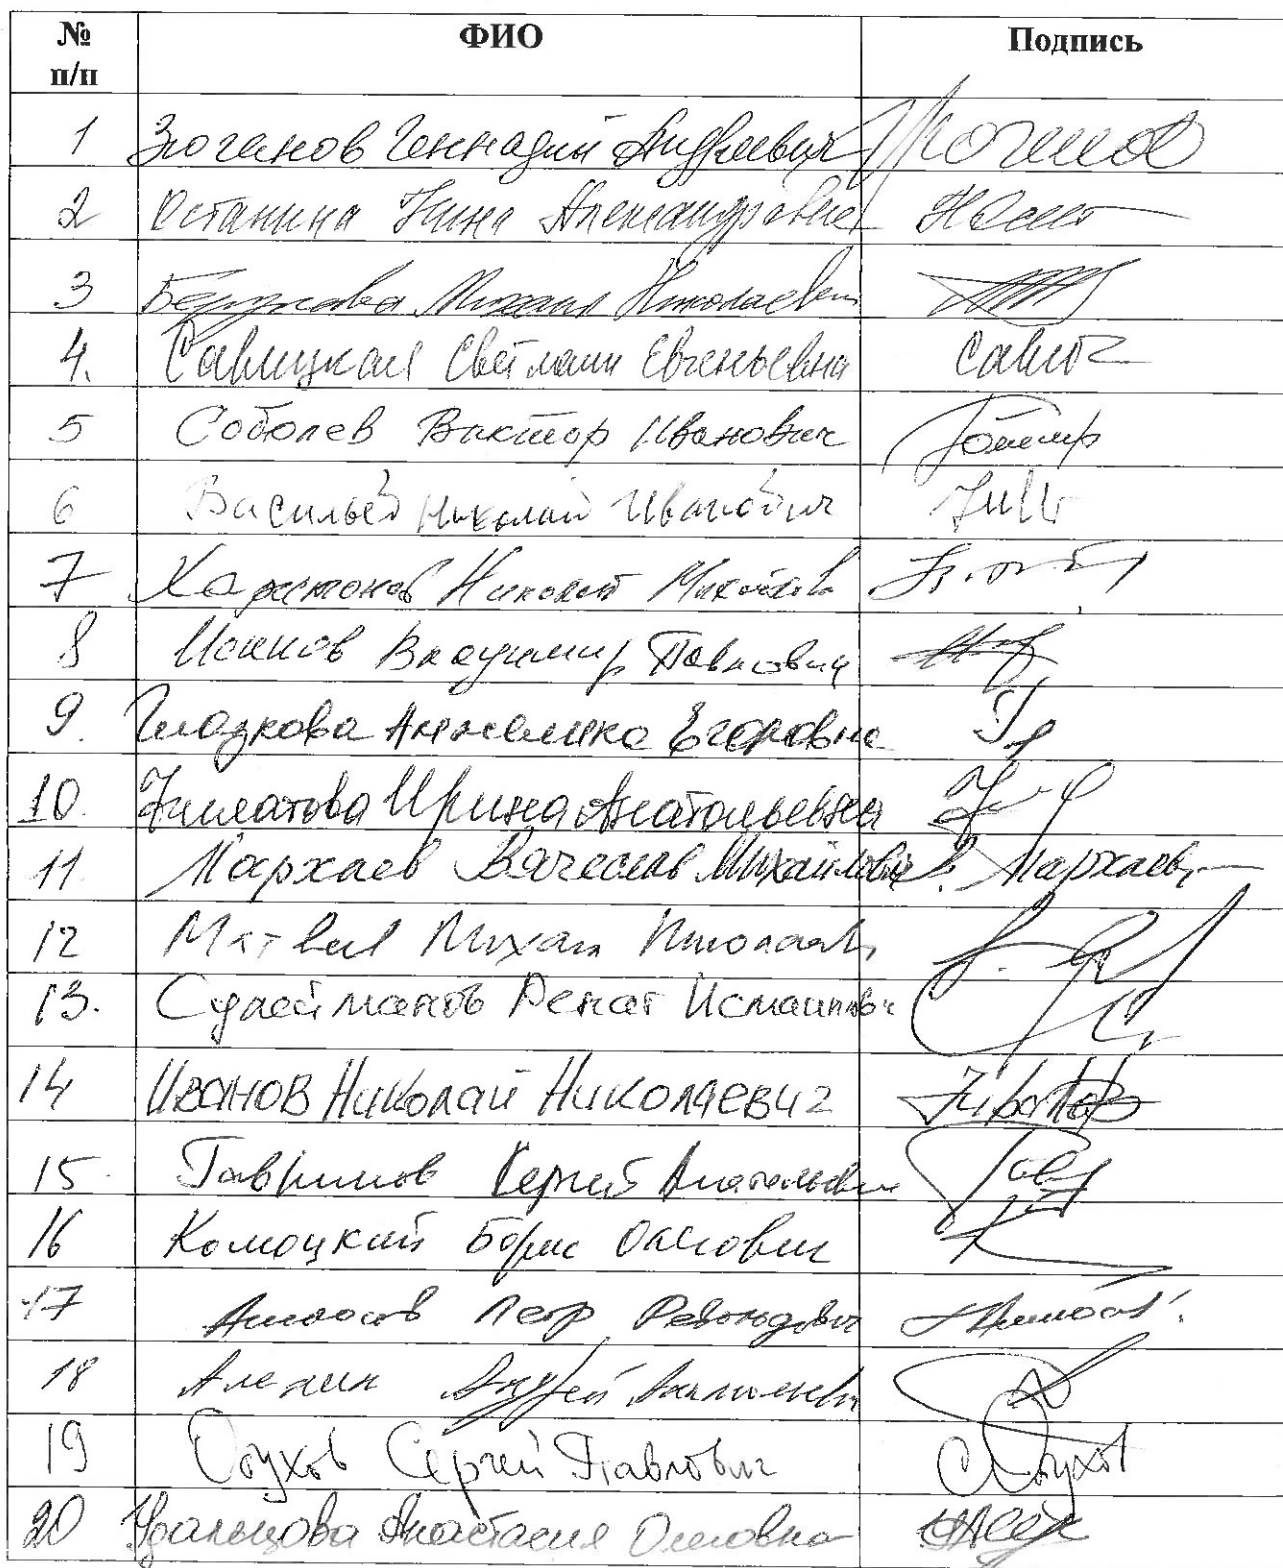 № п/п ФИО Подпись
1 Зюганов Геннадий Андреевич
2 Останина Нина Александровна
3 Михаил Николаевич
4. Савицкая Светлана Евгеньевна
5 Соболев Виктор Иванович
6 Васильев Николай Иванович
7 Харитонов Николай
8 Исаков Владимир Павлович
9. Глазкова Анжелика Егоровна
10. Филатова Ирина Анатольевна
11 Мархаев Вячеслав Михайлович В. Мархаев
12 Матвеев Михаил Николаевич
13. Сулейманов Ренат Исмаилович
14 Иванов Николай Николаевич
15 Гаврилов Сергей Анатольевич
16 Комоцкий Борис Олегович
17 Аммосов Петр Револьдович Аммосов
18 Алехин Андрей Анатольевич
19 Обухов Сергей Павлович Обухов
20 Удальцова Анастасия Олеговна